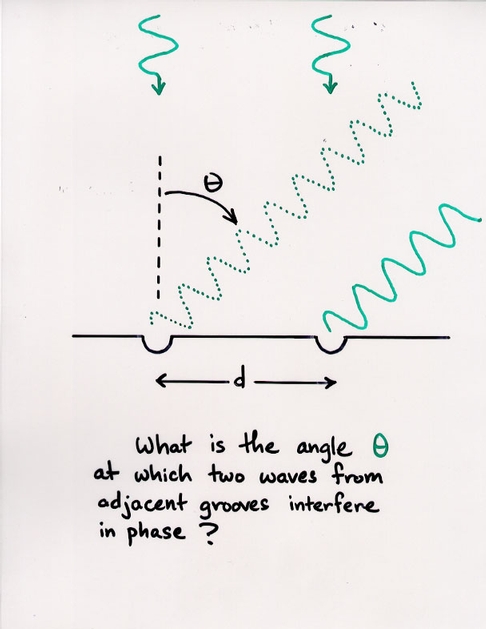 θ
d
What is the angle θ
at which two waves from
adjacent grooves interfere
in phase ?